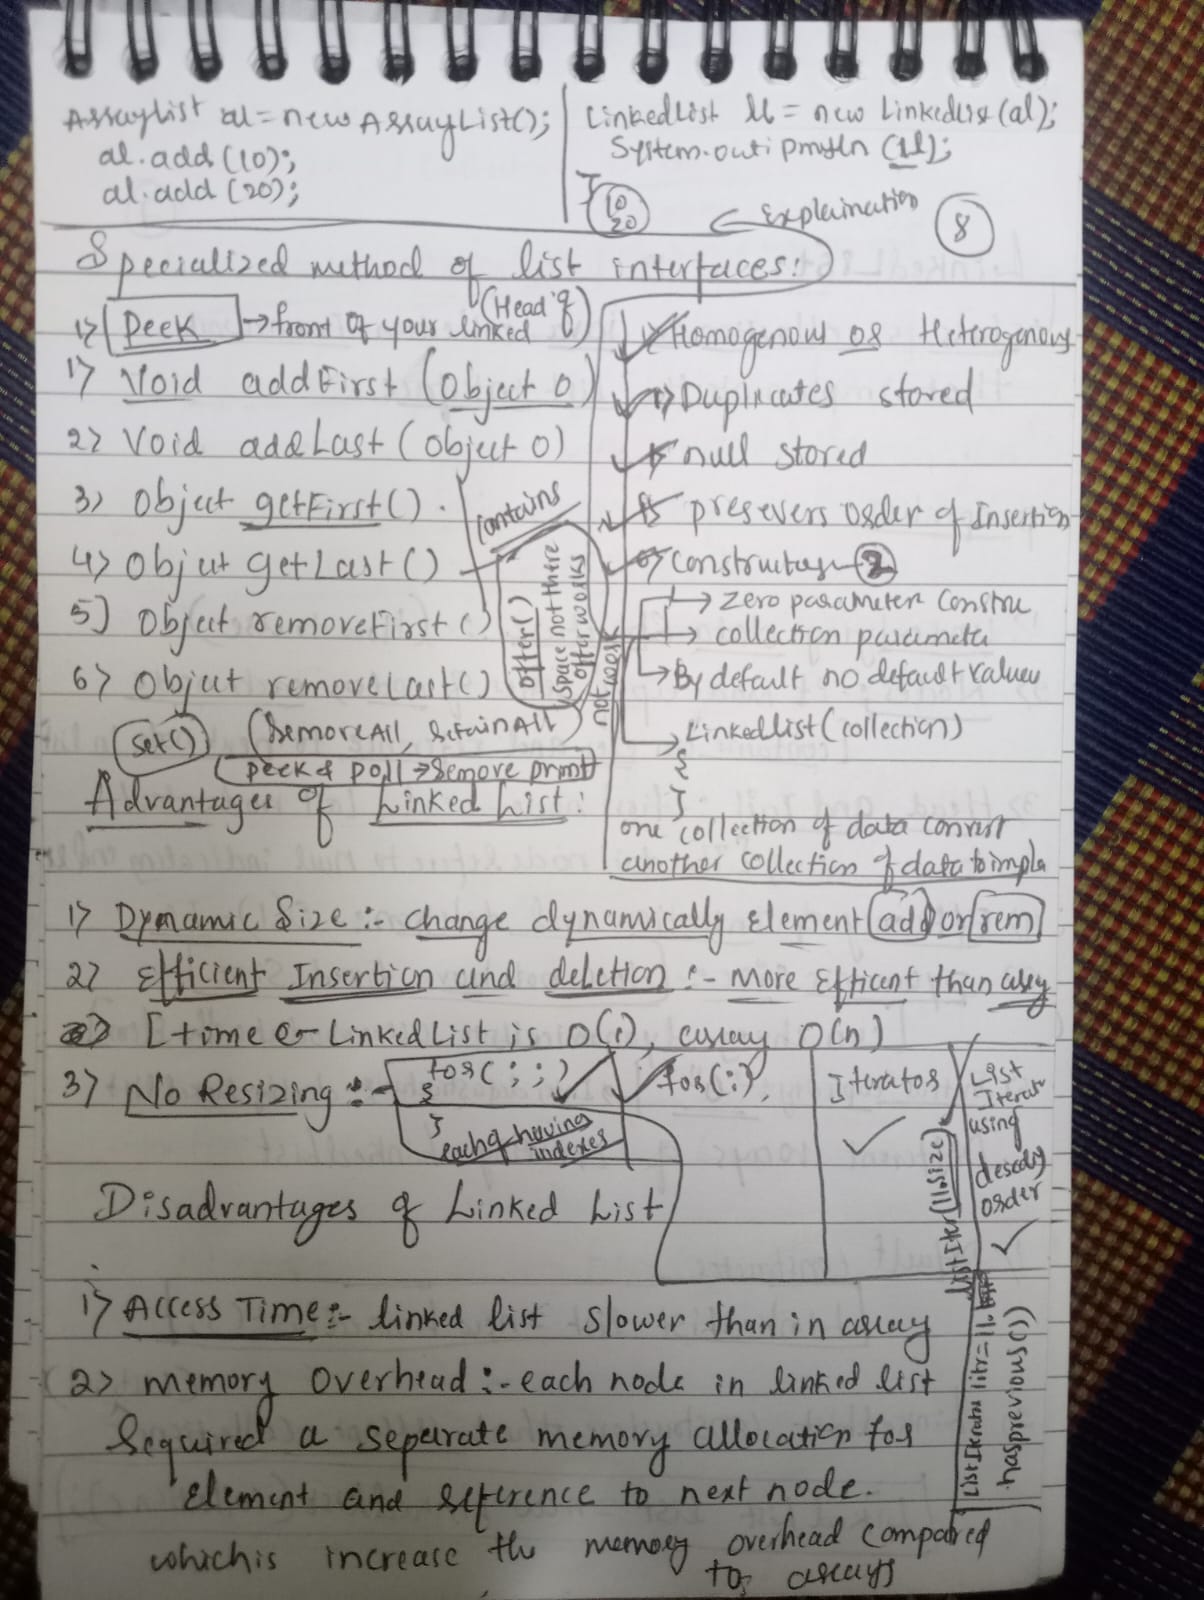 ArrayList al = new ArrayList();
al.add(10);
al.add(20);
LinkedList ll = new LinkedList(al);
System.out.println(ll);
10
20
Explaination
8
Specialized method of list interfaces:
1> Peek → front of your linked
(Head of)
1> Void addFirst (Object O)
2> Void addLast (Object O)
3> Object getFirst().
4> Object getLast()
5] Object removeFirst()
6> Object removeLast()
set()
(RemoveAll, RetainAll
peek & poll → remove print
contains
offer()
(space not there
offer works
not work
Homogenous or Heterogenous
Duplicates stored
null stored
presevers order of Insertion
Constructor 2
→ Zero parameter Constru
→ collection parameta
→ By default no default values
→ LinkedList (collection)
{
}
one collection of data convert
another collection of data to impla
Advantages of Linked List:
1> Dynamic Size :- change dynamically element add or rem
2> Efficient Insertion and deletion :- More Efficent than array
[time & LinkedList is O(1), array O(n)
3> No Resizing :-
for( ; ; )
{
}
each of having
indexes
for(:),
Iterator
List
Iterat
using
order
listItr(ll.size)
ListIterator litr = ll.
.hasprevious()
Disadvantages of Linked List
1> Access Time :- linked list slower than in array
2> memory overhead :- each node in linked list
required a separate memory allocation for
element and reference to next node.
which is increase the memory overhead compared
to arrays